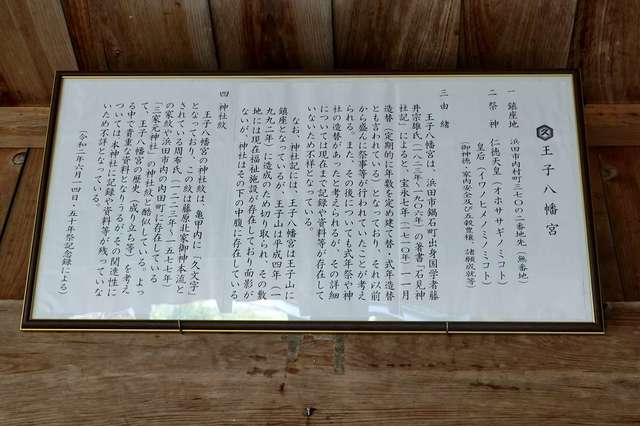 久 王子八幡宮
一 鎮座地 浜田市内村町三七〇の二番地先（無番地）
二 祭 神 仁徳天皇（オホササギノミコト）
皇后（イワノヒメノミコト）
「御神徳・家内安全及び五穀豊穣、諸願成就等」
三 由 緒
王子八幡宮は、浜田市鍋石町出身国学者藤
井宗雄氏（一八二三年～一九〇六年）の著書「石見神
社記」によると、宝永七年（一七一〇年）一一月
造替（定期的に年数を定め建て替・式年造替
とも言われている）となっており、それ以前
から盛んに祭事等が行われていたことが考え
られる。また、その後についても式年祭や神
社の造替があったと考えられるが、その詳細
については現在まで記録や資料等が存在して
いないため不祥となっている。
なお、神社記には、王子八幡宮は王子山に
鎮座となっているが、王子山は平成四年（一
九九二年）に造成のため切り取られ、その敷
地には現在福祉施設が存在しており面影が
ないが、神社はその下の中腹に存在している
四 神社紋
王子八幡宮の神社紋は、亀甲内に「久文字」
となっており、この紋は藤原北家御神本流と
されている周布氏（一二二三年～一五七七年）
の家紋や浜田市内の内田町に存在している
「三家元神社」の神社紋と酷似している。よっ
て、王子八幡宮の歴史（成り立ち等）を考え
る中で貴重な資料となりうるが、その関連性に
ついては本神社に記録や資料等が残っていな
いため不詳となっている。
（令和二年六月一四日・五十年祭記念録による）